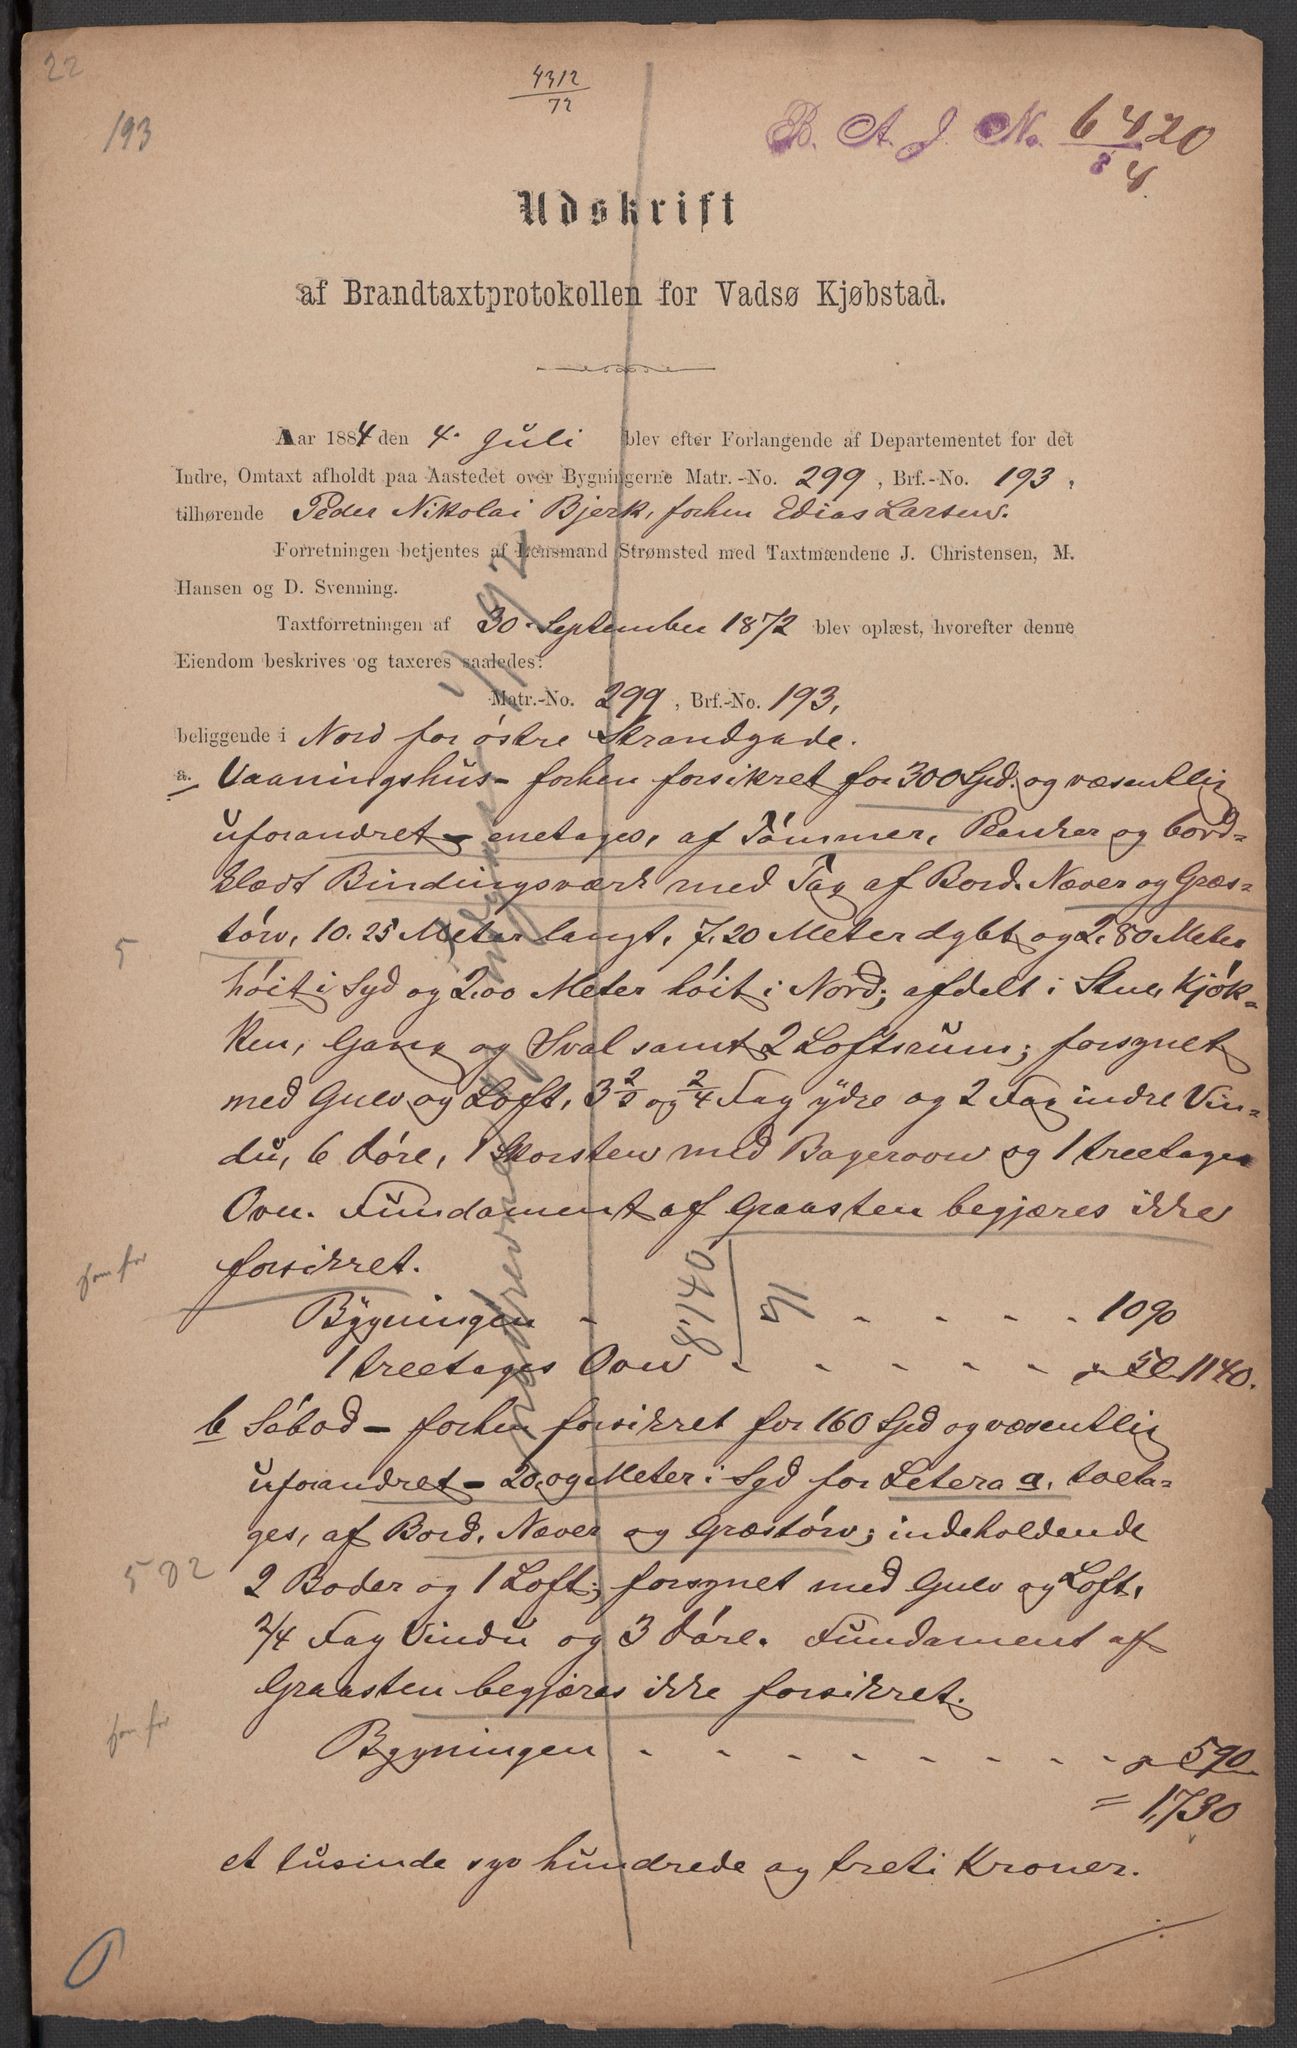 22
193
4312
72
B. A. J. No. 6420
8 4
Udskrift
af Brandtaxtprotokollen for Vadsø Kjøbstad.
Aar 1884 den 4. Juli blev efter Forlangende af Departementet for det
Indre, Omtaxt afholdt paa Aastedet over Bygningerne Matr.-No. 299, Brf.-No. 193,
tilhørende Peder Nikolai Bjerk, forhen Edias Larsen.
Forretningen betjentes af Lensmand Strømsted med Taxtmændene J. Christensen, M.
Hansen og D. Svenning.
Taxtforretningen af 30. September 1872 blev oplæst, hvorefter denne
Eiendom beskrives og taxeres saaledes:
Matr.-No. 299, Brf.-No. 193,
beliggende i Nord for østre Strandgade.
a. Vaaningshus - forhen forsikret for 300 Spd. og væsentlig
uforandret - enetages, af Tømmer, Planker og bord-
klædt Bindingsværk med Tag af Bord, Næver og Græs-
tørv, 10.25 Meter langt, 7.20 Meter dybt og 2.80 Meter
5
høit i Syd og 2.00 Meter høit i Nord; afdelt i Stue, Kjøk-
ken, Gang og Sval samt 2 Loftsrum; forsynet
med Gulv og Loft, 3 og 2/4 Fag ydre og 2 Fag indre Vin-
du, 6 Døre, 1 Skorsten med Bagerovn og 1 treetages
Ovn. Fundament af Graasten begjæres ikke
forsikret.
Bygningen - - - - - 1090
1 treetages Ovn - - - - - - " 50. 1140.
8.140
71
b Søbod - forhen forsikret for 160 Spd og væsentlig
uforandret - 20.09 Meter i Syd for Letera a, toeta-
ges, af Bord, Næver og Græstørv; indeholdende
2 Boder og 1 Loft; forsynet med Gulv og Loft,
2/4 Fag Vindu og 3 Døre. Fundament af
Graasten begjæres ikke forsikret.
Bygningen - - - - - - - - " 590
= 1,730
et tusinde syv hundrede og treti Kroner.